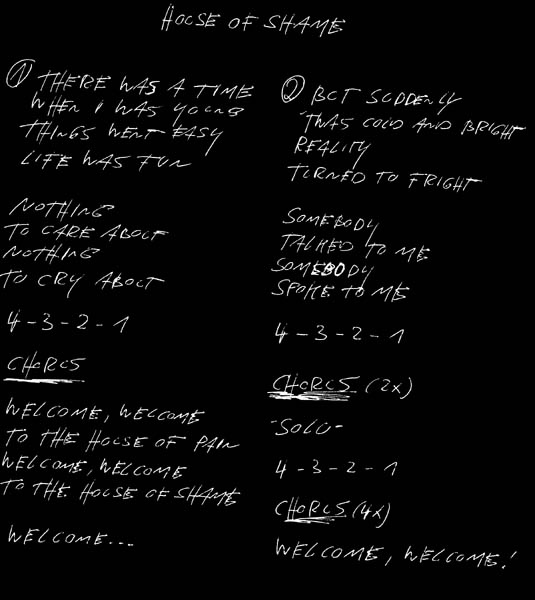 HOUSE OF SHAME
① THERE WAS A TIME
WHEN I WAS YOUNG
THINGS WENT EASY
LIFE WAS FUN
NOTHING
TO CARE ABOUT
NOTHING
TO CRY ABOUT
4-3-2-1
CHORUS
WELCOME, WELCOME
TO THE HOUSE OF PAIN
WELCOME, WELCOME
TO THE HOUSE OF SHAME
WELCOME...
② BUT SUDDENLY
'TWAS COLD AND BRIGHT
REALITY
TURNED TO FRIGHT
SOMEBODY
TALKED TO ME
SOMEBODY
SPOKE TO ME
4-3-2-1
CHORUS (2x)
-SOLO-
4-3-2-1
CHORUS (4x)
WELCOME, WELCOME!